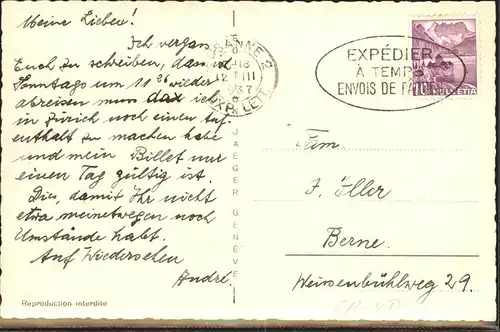 Meine Lieben!
Ich vergass
Euch zu schreiben, dass ich
Sonntags um 11 26 wieder
abreisen muss da ich
in Zürich noch einen Auf-
enthalt zu machen habe
und mein Billet nur
einen Tag gültig ist.
Dies, damit Ihr nicht
etwa meinetwegen noch
Umstände habt.
Auf Wiedersehen
André.
Reproduction interdite
JAEGER GENÈVE
LAUSANNE 2
EXP. LETT.
EXPÉDIER
À TEMPS
ENVOIS DE PÂQUES
10 HELVETIA
Fam.
J. Iller
Berne.
Weissenbühlweg 29.